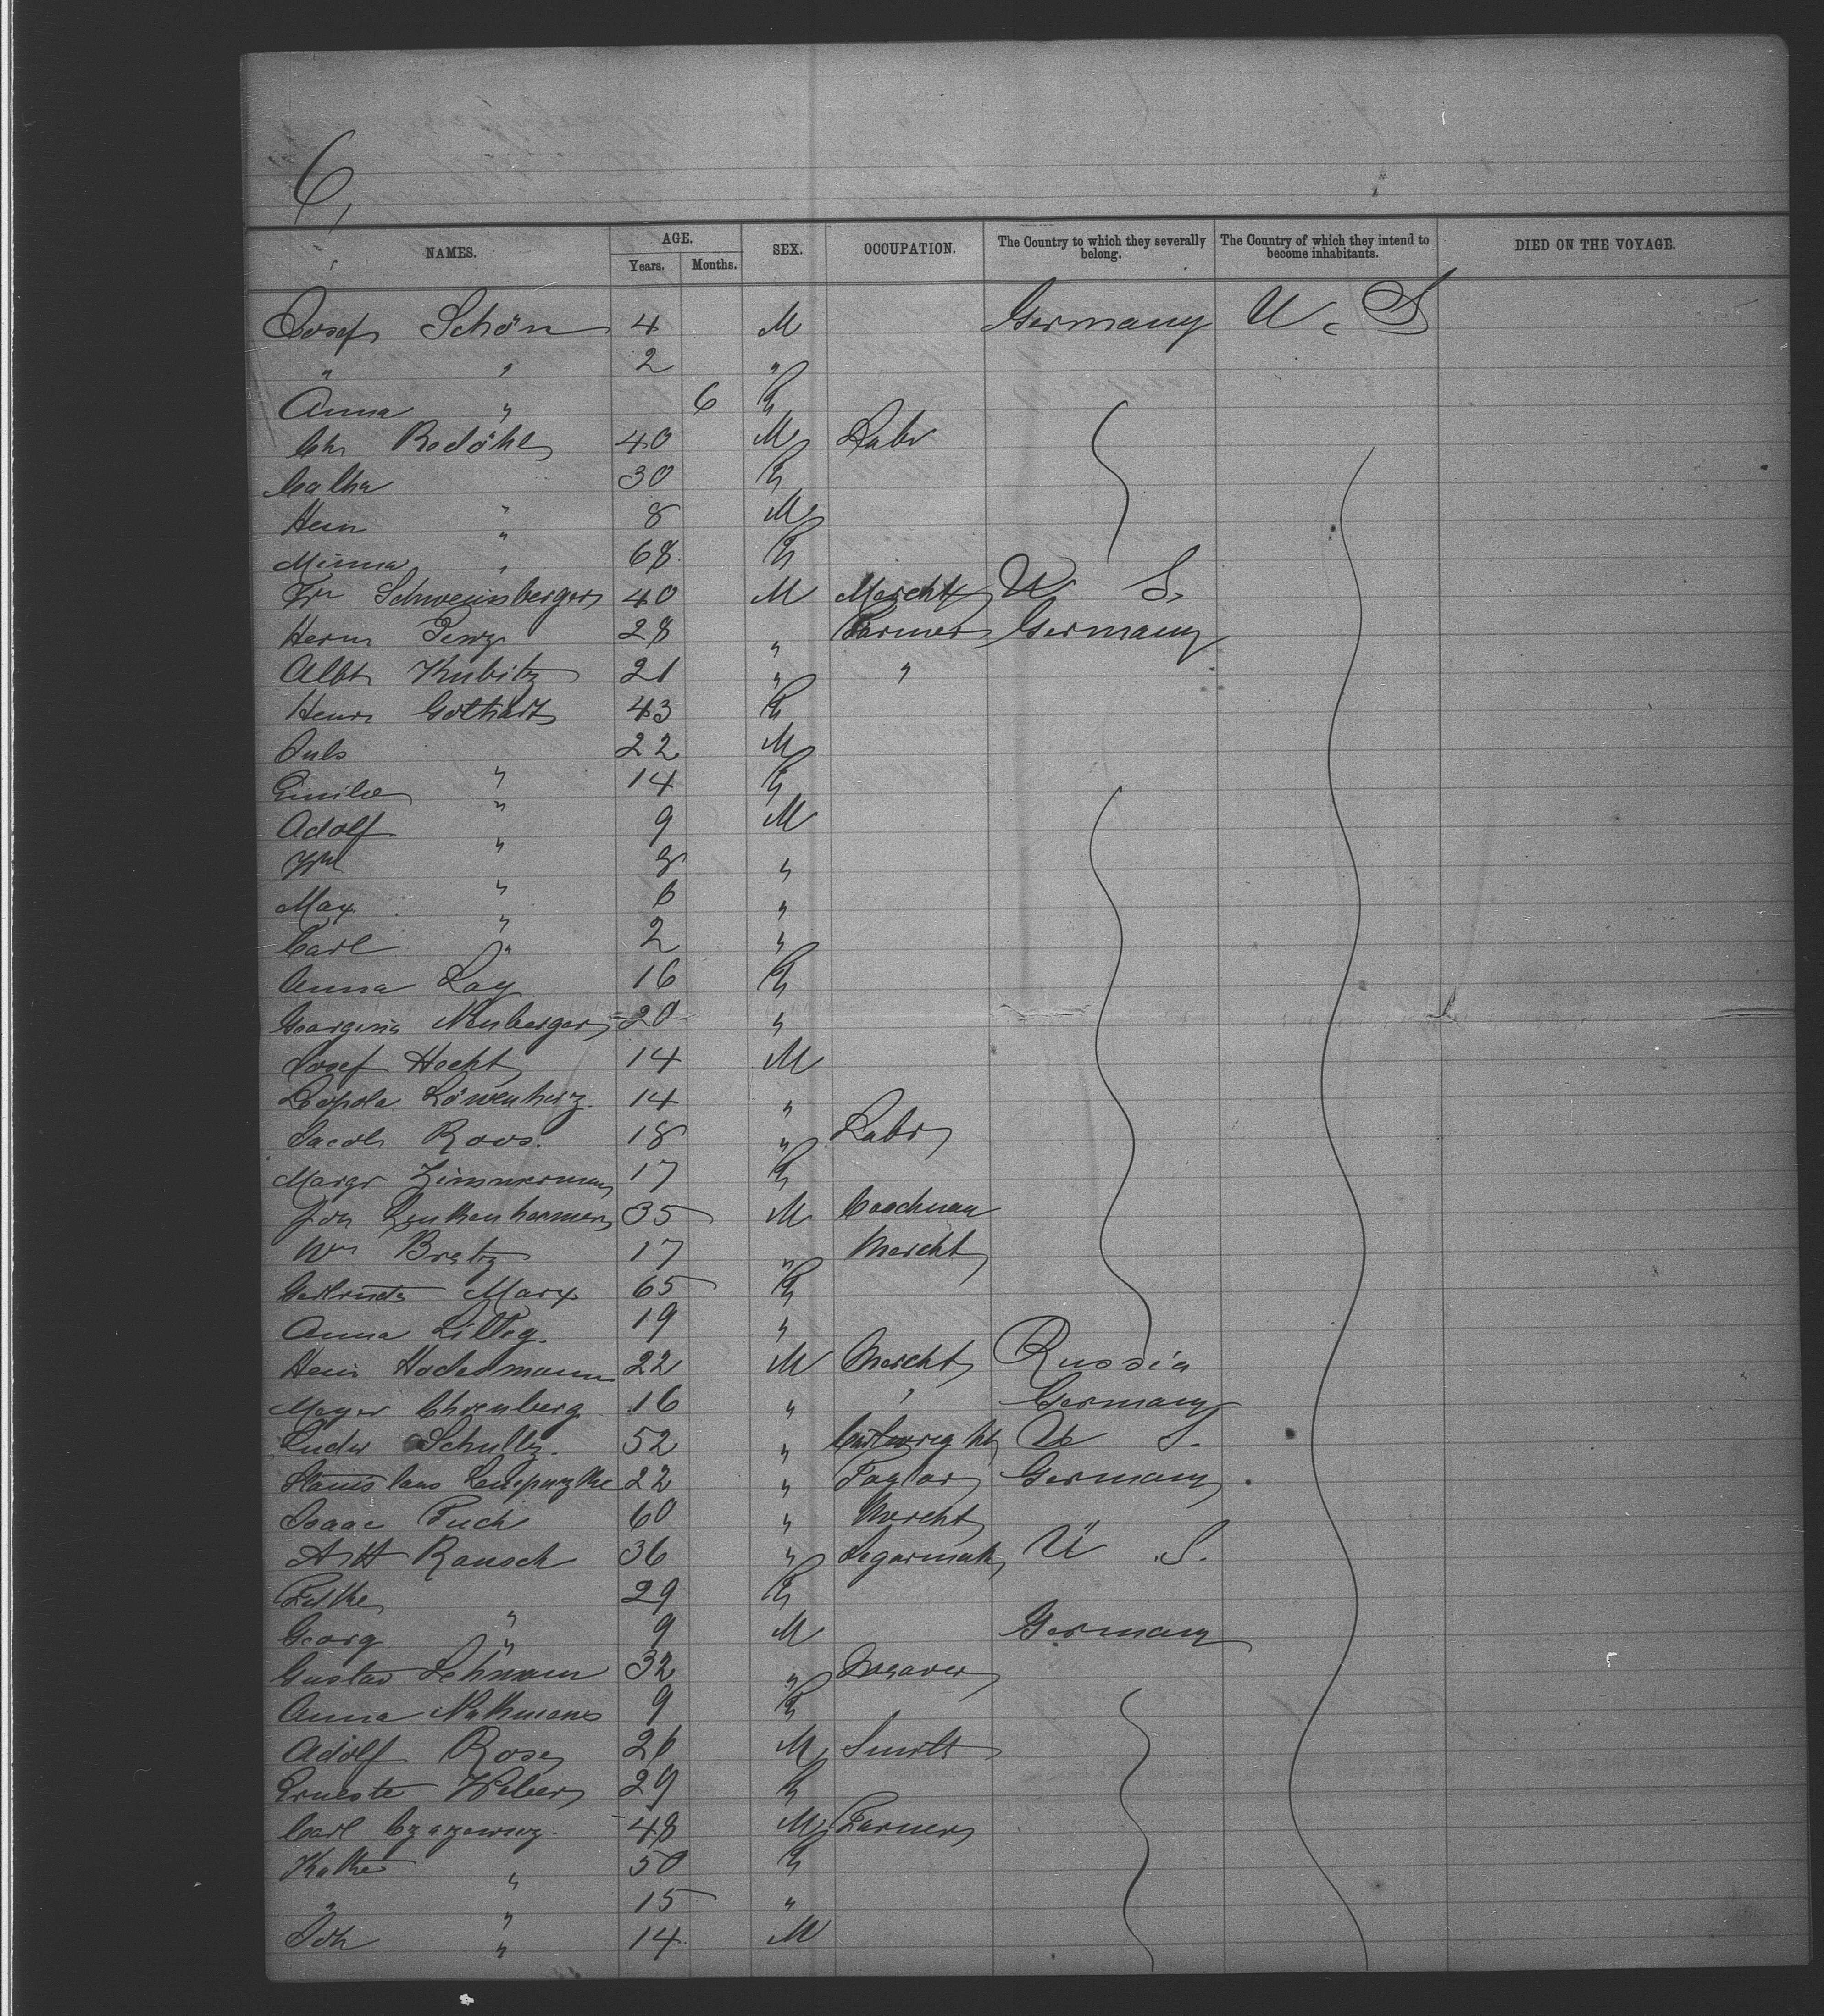 6,
NAMES. AGE. SEX. OCCUPATION. The Country to which they severally belong. The Country of which they intend to become inhabitants. DIED ON THE VOYAGE.
Years. Months.
Josef Schön 4 M Germany U. S
" " 2 "
Anna " 6 F
Chr Redöhl 40 M Labr
Catha " 30 F
Hein " 8 M
Minna " 68 F
Fr Schweinsberger 40 M Mercht U S.
Herm Penz 28 " Farmer Germany
Albt Kubitz 21 " "
Henr Gothart 43 F
Juls " 22 M
Emilie " 14 F
Adolf " 9 M
Wm " 8 "
Max " 6 "
Carl " 2 "
Anna Lay 16 F
Georgina Neuberger 20 "
Josef Hecht 14 M
Leopold Löwenherz 14 "
Jacob Roos. 18 " Labr
Margr Zimmermann 17 F
Joh 35 M Coachman
Wm Bratz 17 " Mercht
Gertrude Marx 65 F
Anna Litteg. 19 "
Hein Hodesmann 22 M Mercht Russia
Meyer Ehrenberg 16 " " Germany
Ludw Schultz. 52 " Cartwright U S.
Stanislaus 22 " Taylor Germany
Isaac Fuch 60 " Mercht
A H Rausch 36 " Segarmak U S.
29 F
Georg " 9 M Germany
Gustav Lehmann 32 " Weaver
Anna 9 F
Adolf Rose 26 M Smith
Erneste Weber 29 F
Carl 48 M Farmer
Kathe " 50 F
" " 15 "
Joh " 14 M